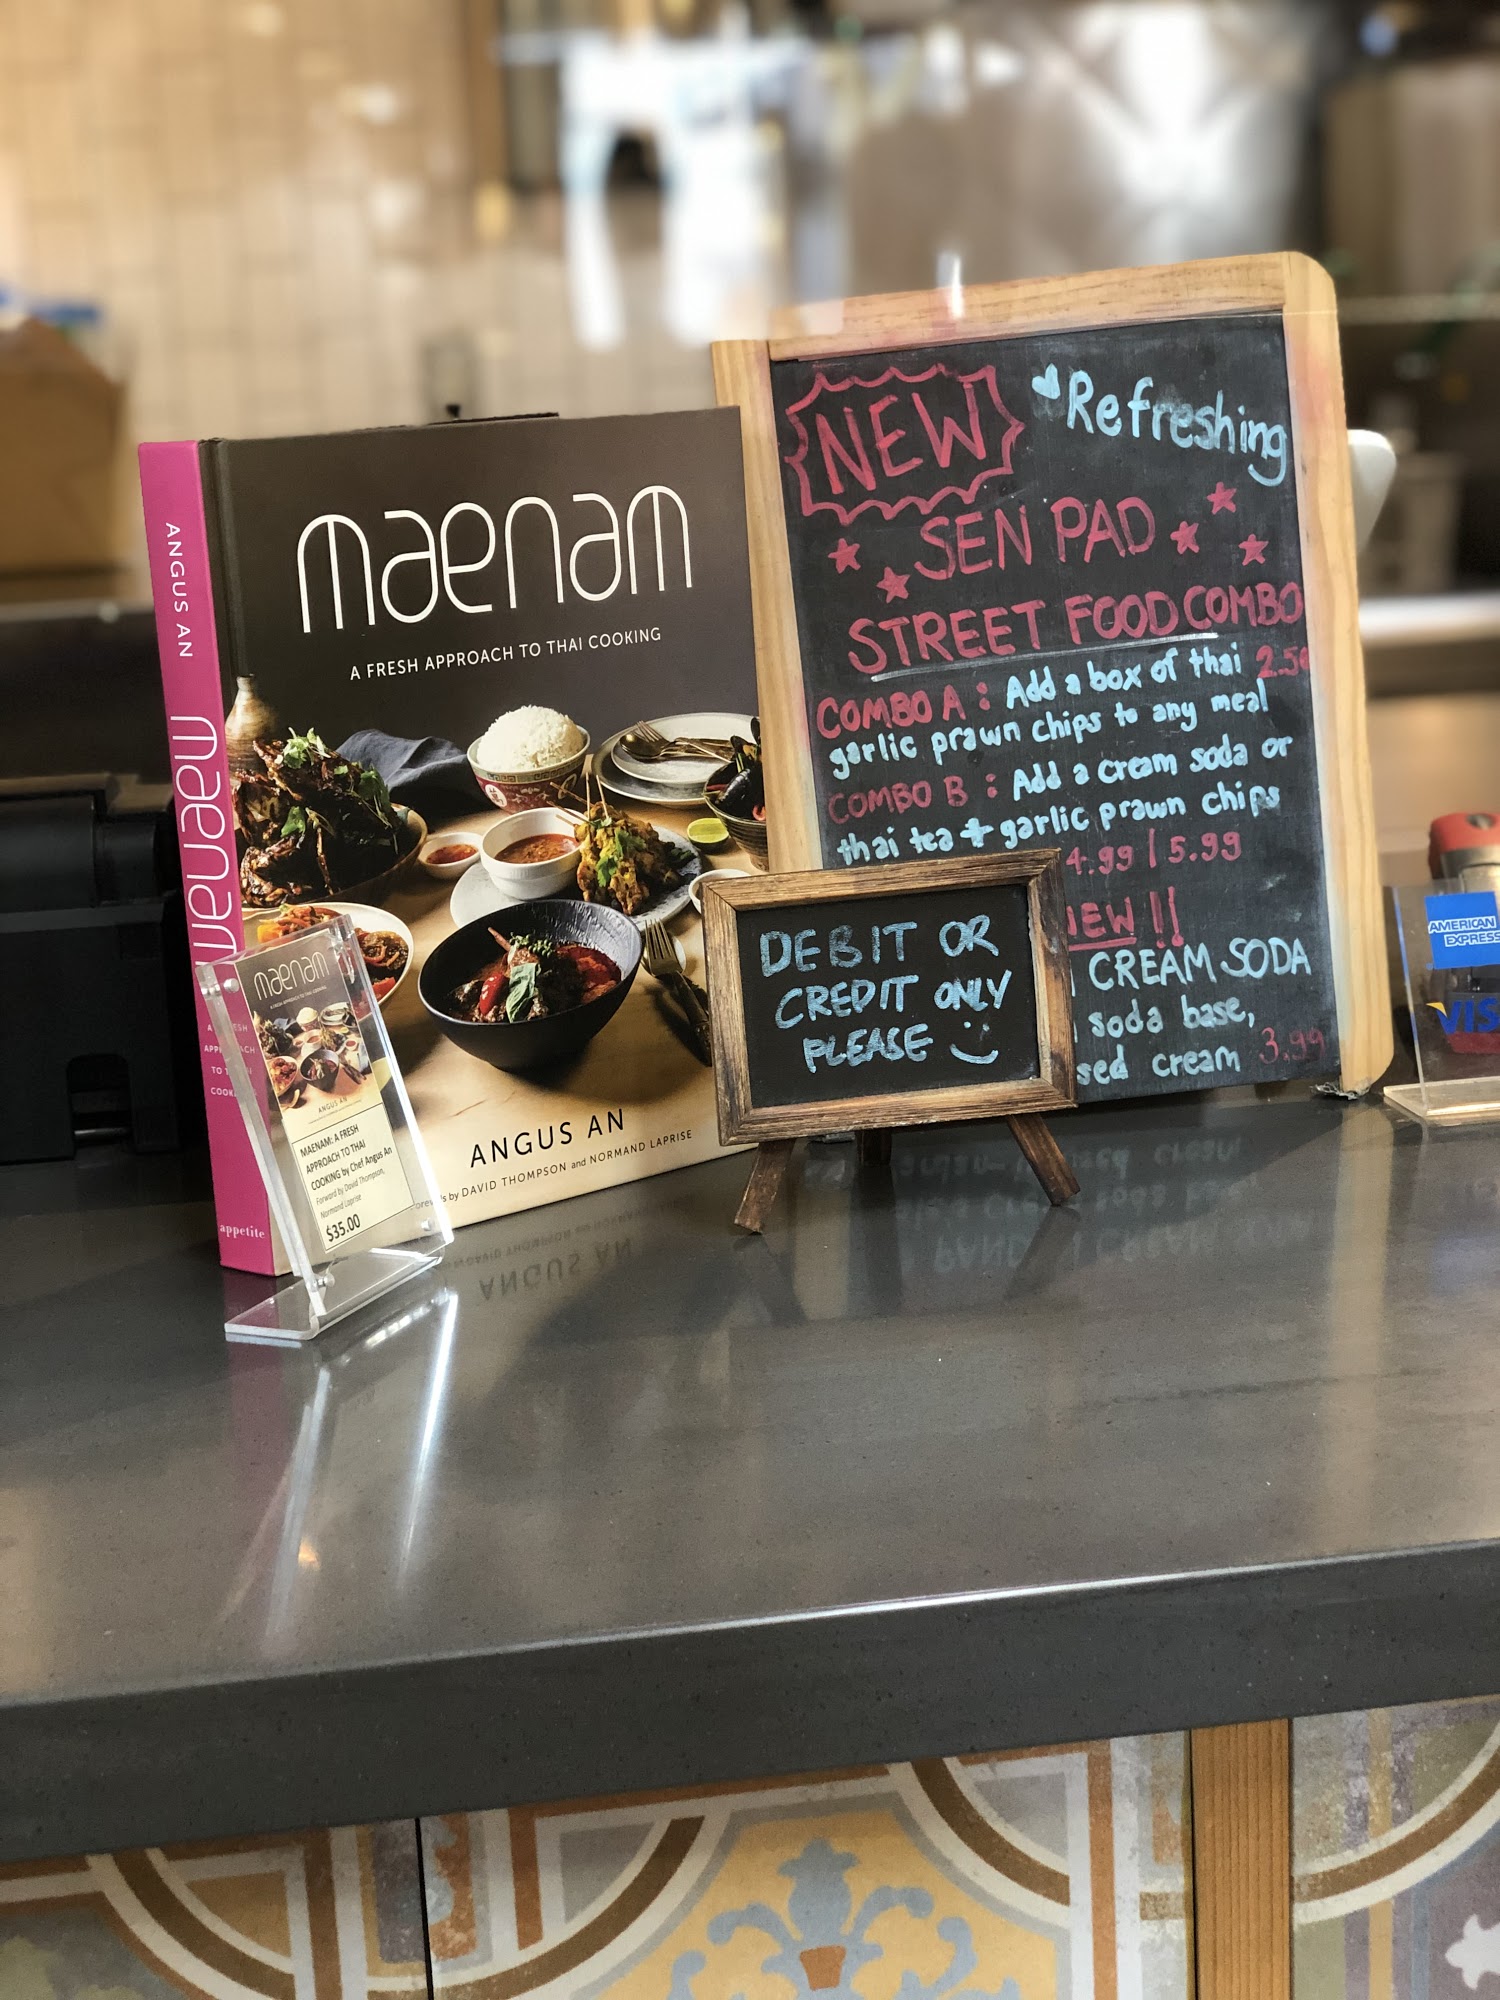 maenam
A FRESH APPROACH TO THAI COOKING
ANGUS AN
DAVID THOMPSON and NORMAND LAPRISE
ANGUS AN
maenam
appetite
maenam
A FRESH APPROACH TO THAI COOKING
ANGUS AN
MAENAM: A FRESH
APPROACH TO THAI
COOKING by Chef Angus An
Forward by David Thompson,
Normand Laprise
$35.00
NEW
Refreshing
SEN PAD
STREET FOOD COMBO
COMBO A : Add a box of thai
garlic prawn chips to any meal
COMBO B : Add a cream soda or
thai tea + garlic prawn chips
4.99 | 5.99
NEW !!
CREAM SODA
soda base,
cream 3.99
DEBIT OR
CREDIT ONLY
PLEASE
AMERICAN
EXPRESS